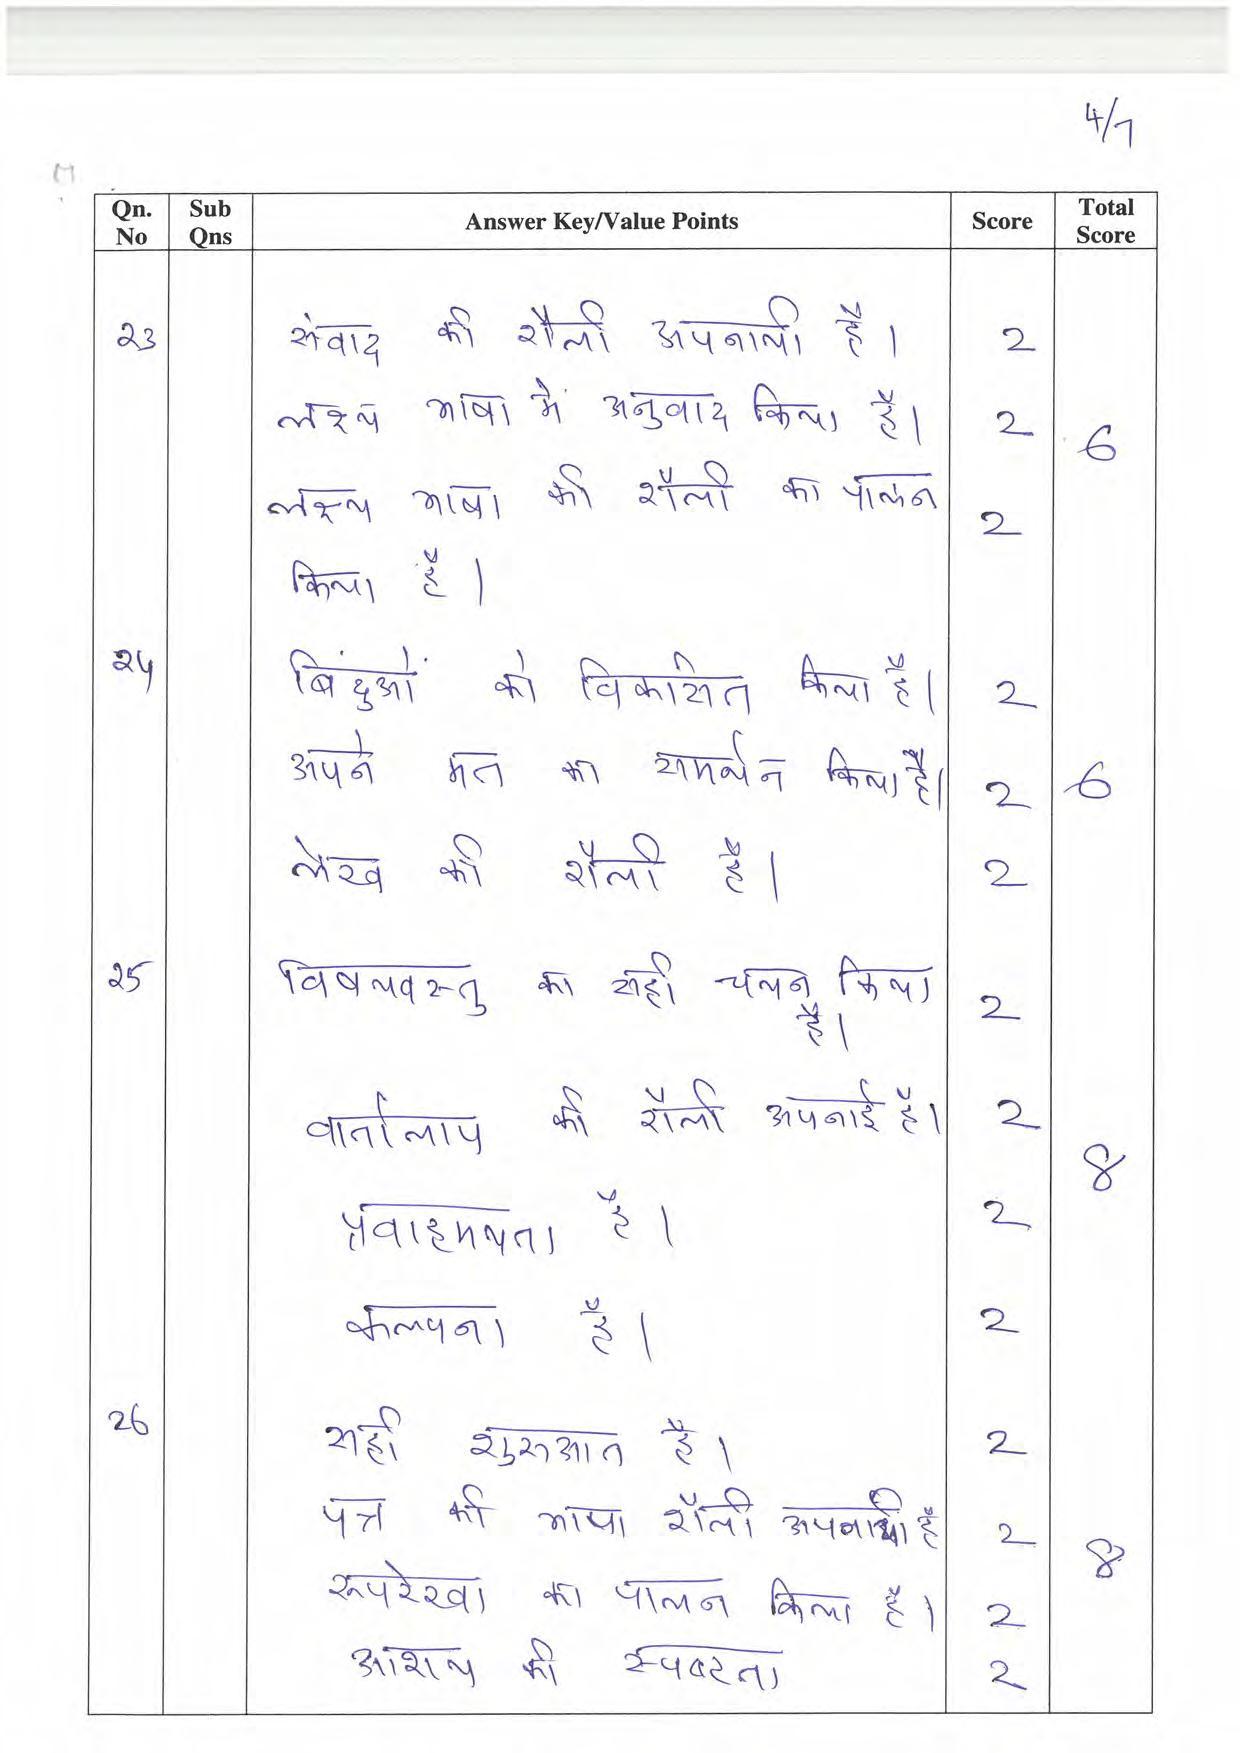 4/7
Qn. No Sub Qns Answer Key/Value Points Score Total Score
23 संवाद की शैली अपनायी है। 2
लक्ष्य भाषा में अनुवाद किया है। 2 6
लक्ष्य भाषा की शैली का पालन 2
किया है।
24 बिंदुओं को विकसित किया है। 2
अपने मत का समर्थन किया है। 2 6
लेख की शैली है। 2
25 विषयवस्तु का सही चयन किया 2
है।
वार्तालाप की शैली अपनाई है। 2
8
प्रवाहमयता है। 2
कल्पना है। 2
26 सही शुरुआत है। 2
पत्र की भाषा शैली अपनायी है 2
8
रूपरेखा का पालन किया है। 2
आशय की स्पष्टता 2